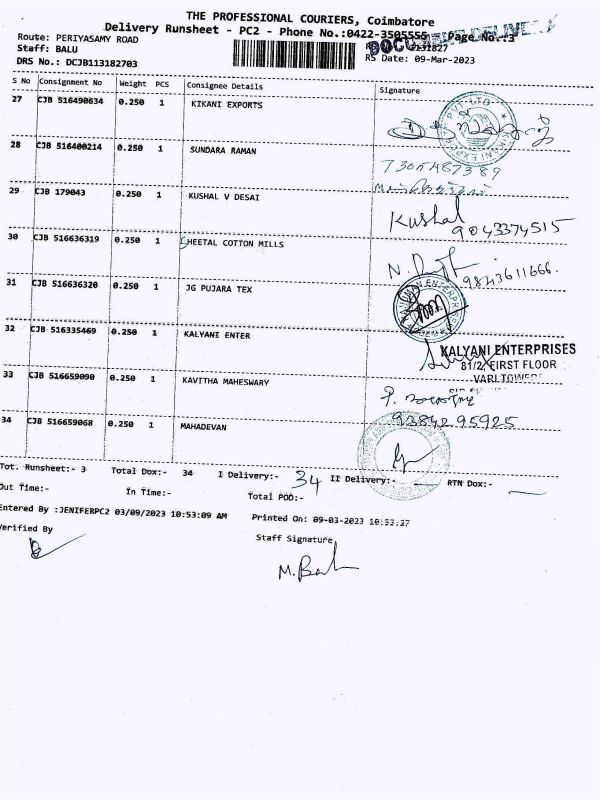 THE PROFESSIONAL COURIERS, Coimbatore
Delivery Runsheet - PC2 - Phone No.:0422-3505555 Page No.:3
Route: PERIYASAMY ROAD
Staff: BALU
DRS No.: DCJB113182703
RS Date: 09-Mar-2023
S No Consignment No Weight PCS Consignee Details Signature
27 CJB 516490634 0.250 1 KIKANI EXPORTS
28 CJB 516400214 0.250 1 SUNDARA RAMAN
7305487389
29 CJB 179043 0.250 1 KUSHAL V DESAI
Kushal
9043374515
30 CJB 516636319 0.250 1 SHEETAL COTTON MILLS
9843611666.
31 CJB 516636320 0.250 1 JG PUJARA TEX
32 CJB 516335469 0.250 1 KALYANI ENTER
KALYANI ENTERPRISES
81/2, FIRST FLOOR
VARI TOWERS
33 CJB 516659090 0.250 1 KAVITHA MAHESWARY
9384295925
34 CJB 516659068 0.250 1 MAHADEVAN
Tot. Runsheet:- 3 Total Dox:- 34 I Delivery:- 34 II Delivery:- RTN Dox:-
Out Time:- In Time:- Total POD:-
Entered By :JENIFERPC2 03/09/2023 10:53:09 AM Printed On: 09-03-2023 10:53:27
Verified By Staff Signature
M. Bal